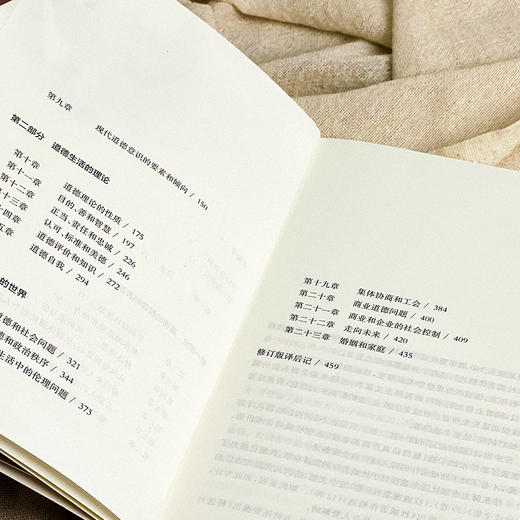 第九章 现代道德意识的要素和倾向 / 156
第二部分 道德生活的理论
第十章 道德理论的性质 / 175
第十一章 目的、善和智慧 / 197
第十二章 正当、责任和忠诚 / 226
第十三章 认可、标准和美德 / 246
十四章 道德评价和知识 / 272
五章 道德自我 / 294
的世界
德和社会问题 / 321
德和政治秩序 / 344
生活中的伦理问题 / 373
第十九章 集体协商和工会 / 384
第二十章 商业道德问题 / 400
第二十一章 商业和企业的社会控制 / 409
第二十二章 走向未来 / 420
第二十三章 婚姻和家庭 / 435
修订版译后记 / 459